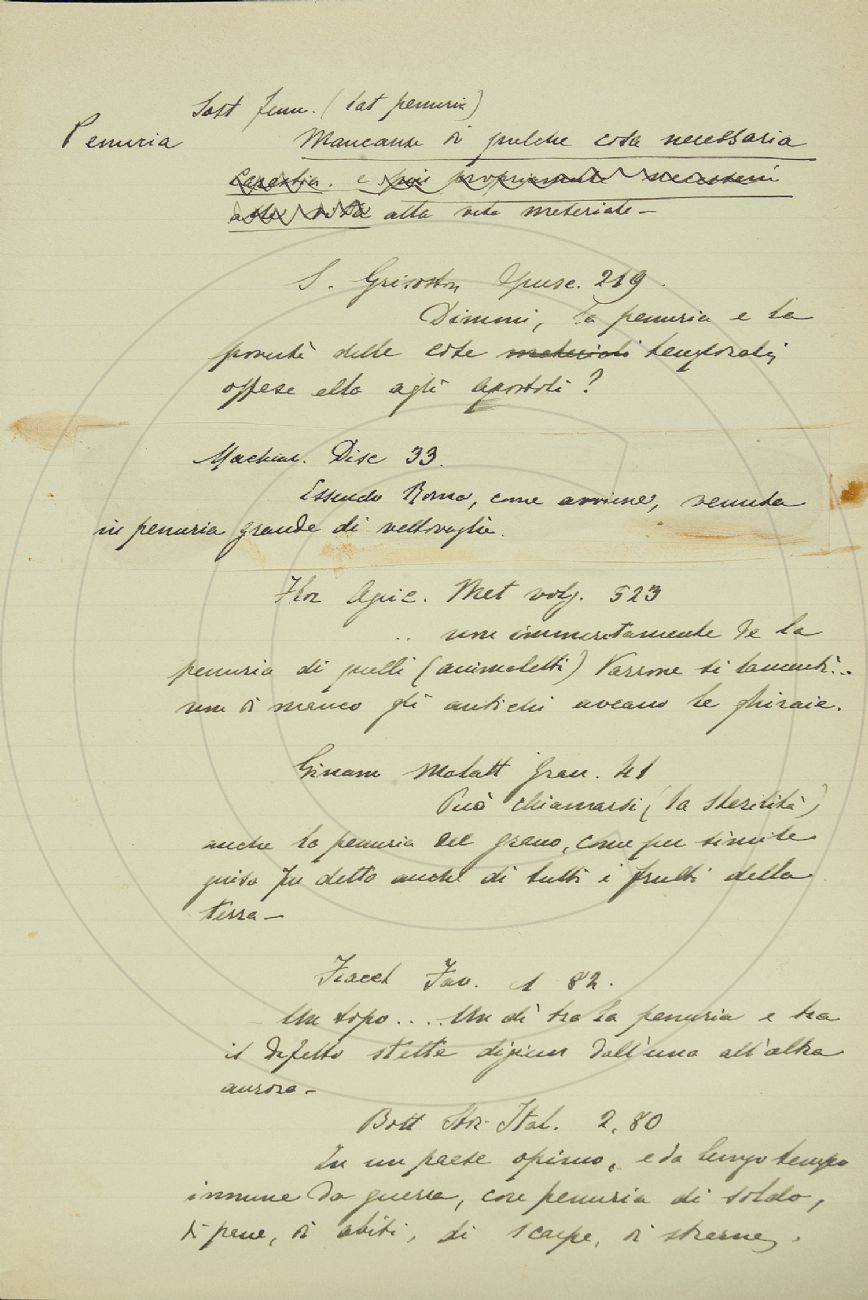 Sost femm. (lat penuria)
Penuria Mancanza di qualche cosa necessaria
Carestia. e più propriamente necessari
alla vita alla vita materiale –
S. Grisostom Opusc. 219.
Dimmi, la penuria e la
povertà delle cose materiali temporali,
offese ella agli Apostoli?
Machiav. Disc 33.
Essendo Roma, come avviene, venuta
in penuria grande di vettovaglie.
Fior Agric. Met volg. 523
.. non immeritamente de la
penuria di quelli (animaletti) Varrone si lamenti...
non di manco gli antichi aveano le ghiraie.
Ginam Malatt gran. 41
Può chiamarsi (la sterilità)
anche la penuria del grano, come per simile
guisa fu detto anche di tutti i frutti della
terra –
Fiacch Fav. 1 82.
Un topo .... Un dì tra la penuria e tra
il difetto stette digiun dall'una all'altra
aurora –
Bott Stor. Ital. 2, 80
In un paese opimo, e da lungo tempo
immune da guerra, con penuria di soldo,
di pane, di abiti, di scarpe, di strame.